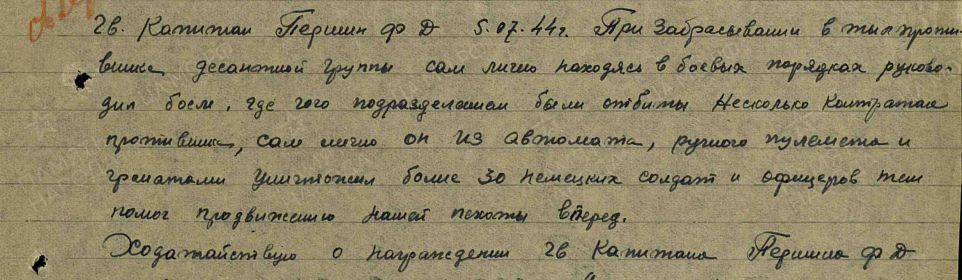 Гв. Капитан Першин Ф Д 5.07.44г. При Забрасывании в тыл проти-
вника десантной группы сам лично находясь в боевых порядках руково-
дил боем, где его подразделением были отбиты Несколько Контратак
противника, сам лично он из автомата, ручного пулемета и
гранатами уничтожил более 30 немецких солдат и офицеров тем
помог продвижению нашей пехоты вперед.
Ходатайствую о награждении Гв Капитана Першина Ф Д